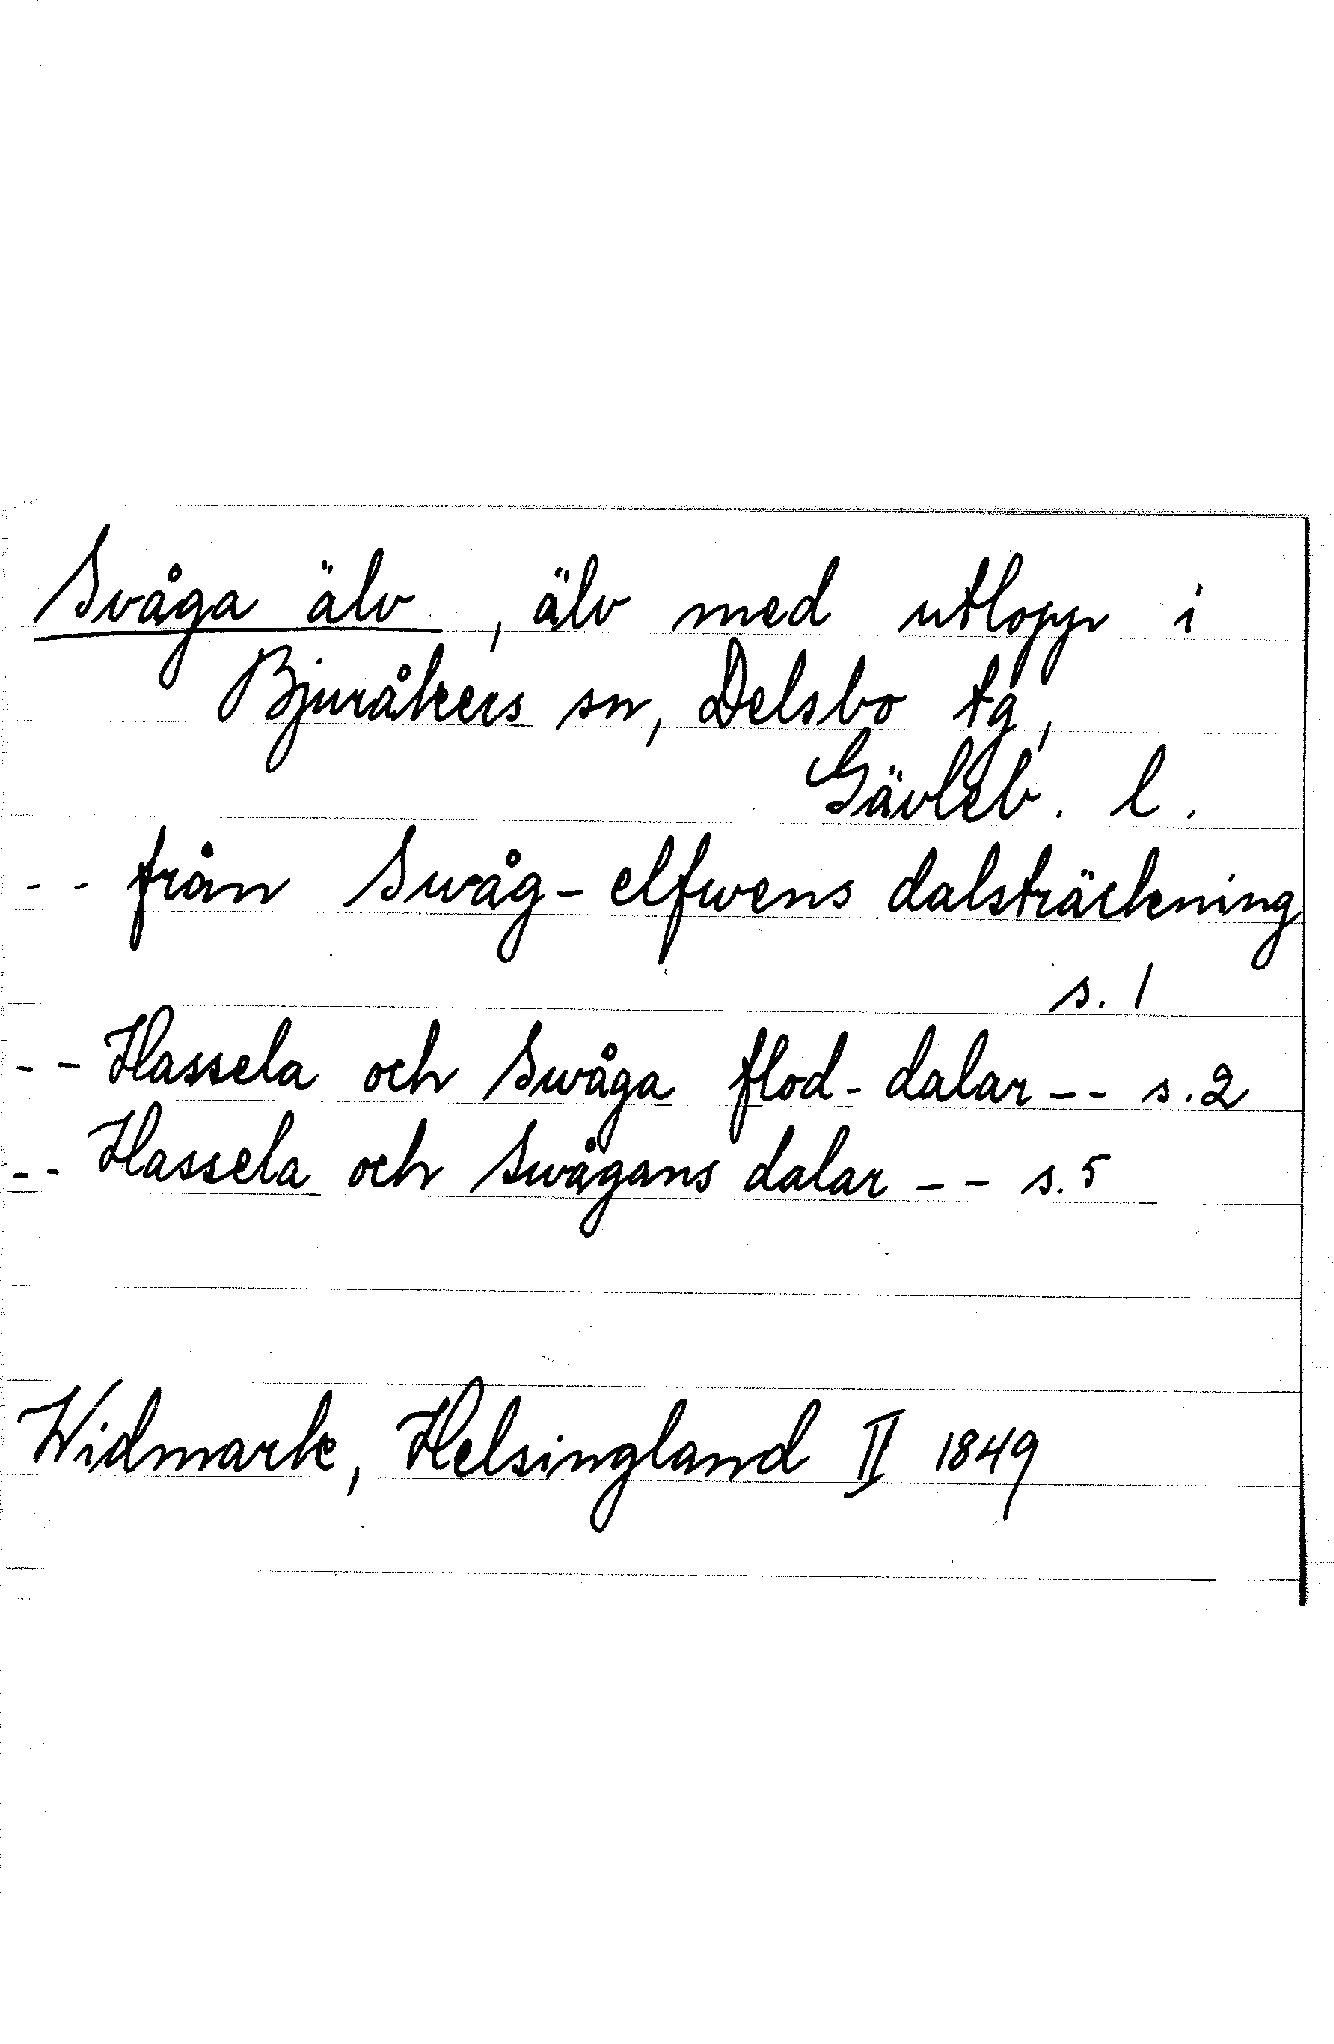 Svåga älv, älv med utlopp i
Bjuråkers sn, Delsbo tg,
Gävleb. l.
-- från Swåg-elfwens dalsträckning
s. 1
-- Hassela och Swåga flod-dalar -- s. 2
-- Hassela och Swågans dalar -- s. 5
Widmark, Helsingland II 1849